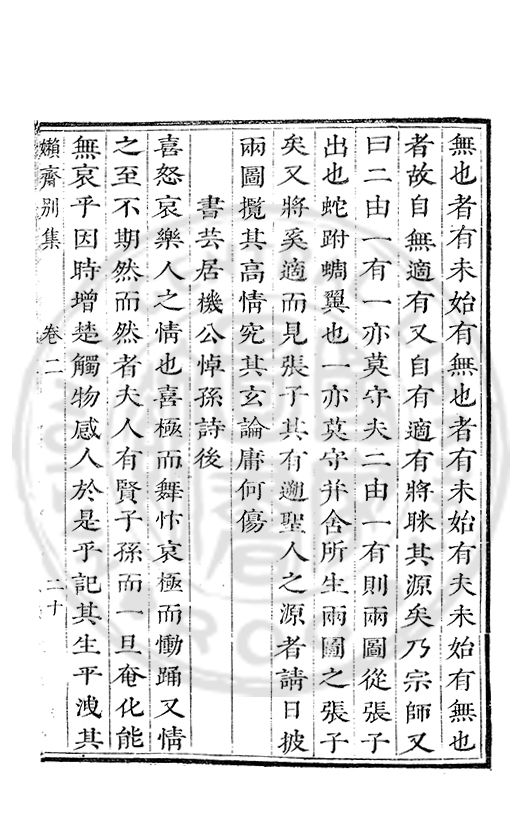 無也者有未始有無也者有未始有夫未始有無也
者故自無適有又自有適有將眯其源矣乃宗師又
曰二由一有一亦莫守夫二由一有則兩圖從張子
出也蛇跗蜩翼也一亦莫守并舍所生兩圖之張子
矣又將奚適而見張子其有遡聖人之源者請日披
兩圖攬其高情究其玄論庸何傷
書芸居機公悼孫詩後
喜怒哀樂人之情也喜極而舞忭哀極而慟踊又情
之至不期然而然者夫人有賢子孫而一旦奄化能
無哀乎因時增楚觸物感人於是乎記其生平洩其
嬾齋別集 卷二 二十